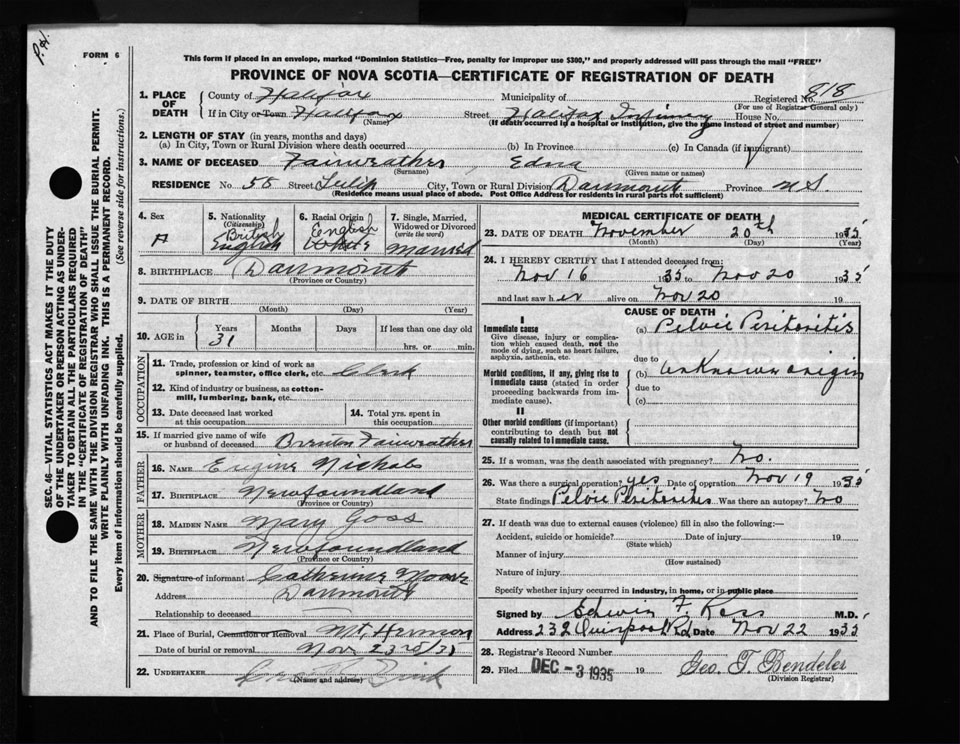 P.H.
FORM 6
This form if placed in an envelope, marked "Dominion Statistics—Free, penalty for improper use $300," and properly addressed will pass through the mail "FREE"
PROVINCE OF NOVA SCOTIA—CERTIFICATE OF REGISTRATION OF DEATH
SEC. 46—VITAL STATISTICS ACT MAKES IT THE DUTY
OF THE UNDERTAKER OR PERSON ACTING AS UNDER-
TAKER TO OBTAIN ALL THE PARTICULARS REQUIRED
IN THE "CERTIFICATE OF REGISTRATION OF DEATH"
AND TO FILE THE SAME WITH THE DIVISION REGISTRAR WHO SHALL ISSUE THE BURIAL PERMIT.
WRITE PLAINLY WITH UNFADING INK. THIS IS A PERMANENT RECORD.
Every item of information should be carefully supplied. (See reverse side for instructions.)
1. PLACE OF DEATH
County of Halifax Municipality of Registered No. 818
(For use of Registrar General only)
If in City or Town Halifax Street Halifax Infirmary House No.
(Name) (If death occurred in a hospital or institution, give the name instead of street and number)
2. LENGTH OF STAY (in years, months and days)
(a) In City, Town or Rural Division where death occurred (b) In Province (c) In Canada (if immigrant)
3. NAME OF DECEASED Fairweather, Edna
(Surname) (Given name or names)
RESIDENCE No. 58 Street Tulip City, Town or Rural Division Dartmouth Province N.S.
(Residence means usual place of abode. Post Office Address for residents in rural parts not sufficient)
4. Sex
F
5. Nationality
(Citizenship)
British
English
6. Racial Origin
English
White
7. Single, Married,
Widowed or Divorced
(write the word)
Married
8. BIRTHPLACE Dartmouth
(Province or Country)
9. DATE OF BIRTH
(Month) (Day) (Year)
10. AGE in Years Months Days If less than one day old
31 hrs. or min.
OCCUPATION
11. Trade, profession or kind of work as
spinner, teamster, office clerk, etc. Clerk
12. Kind of industry or business, as cotton-
mill, lumbering, bank, etc.
13. Date deceased last worked
at this occupation
14. Total yrs. spent in
this occupation
15. If married give name of wife
or husband of deceased Brenton Fairweather
FATHER
16. NAME Eugine Nichols
17. BIRTHPLACE Newfoundland
(Province or Country)
MOTHER
18. MAIDEN NAME Mary Goss
19. BIRTHPLACE Newfoundland
(Province or Country)
20. Signature of informant Catherine Moore
Address Dartmouth
Relationship to deceased
21. Place of Burial, Cremation or Removal Mt. Hermon
Date of burial or removal Nov 23rd/35
22. UNDERTAKER
(Name and address)
MEDICAL CERTIFICATE OF DEATH
23. DATE OF DEATH November 20th 1935
(Month) (Day) (Year)
24. I HEREBY CERTIFY that I attended deceased from:
Nov 16 1935 to Nov 20 1935
and last saw her alive on Nov 20 19
CAUSE OF DEATH
I
Immediate cause
Give disease, injury or complica-
tion which caused death, not the
mode of dying, such as heart failure,
asphyxia, asthenia, etc.
(a) Pelvic Peritonitis
due to
Morbid conditions, if any, giving rise to
immediate cause (stated in order
proceeding backwards from im-
mediate cause).
(b) Unknown origin
due to
(c)
II
Other morbid conditions (if important)
contributing to death but not
causally related to immediate cause.
25. If a woman, was the death associated with pregnancy? No.
26. Was there a surgical operation? yes Date of opration Nov 19 1935
State findings Pelvic Peritonitis Was there an autopsy? No
27. If death was due to external causes (violence) fill in also the following:—
Accident, suicide or homicide? Date of injury 19
(State which)
Manner of injury
(How sustained)
Nature of injury
Specify whether injury occurred in industry, in home, or in public place
Signed by Edwin F. Ross M.D.
Address 232 Quinpool Rd Date Nov 22 1935
28. Registrar's Record Number
29. Filed DEC -3 1935 19 Geo. T. Bendeler
(Division Registrar)